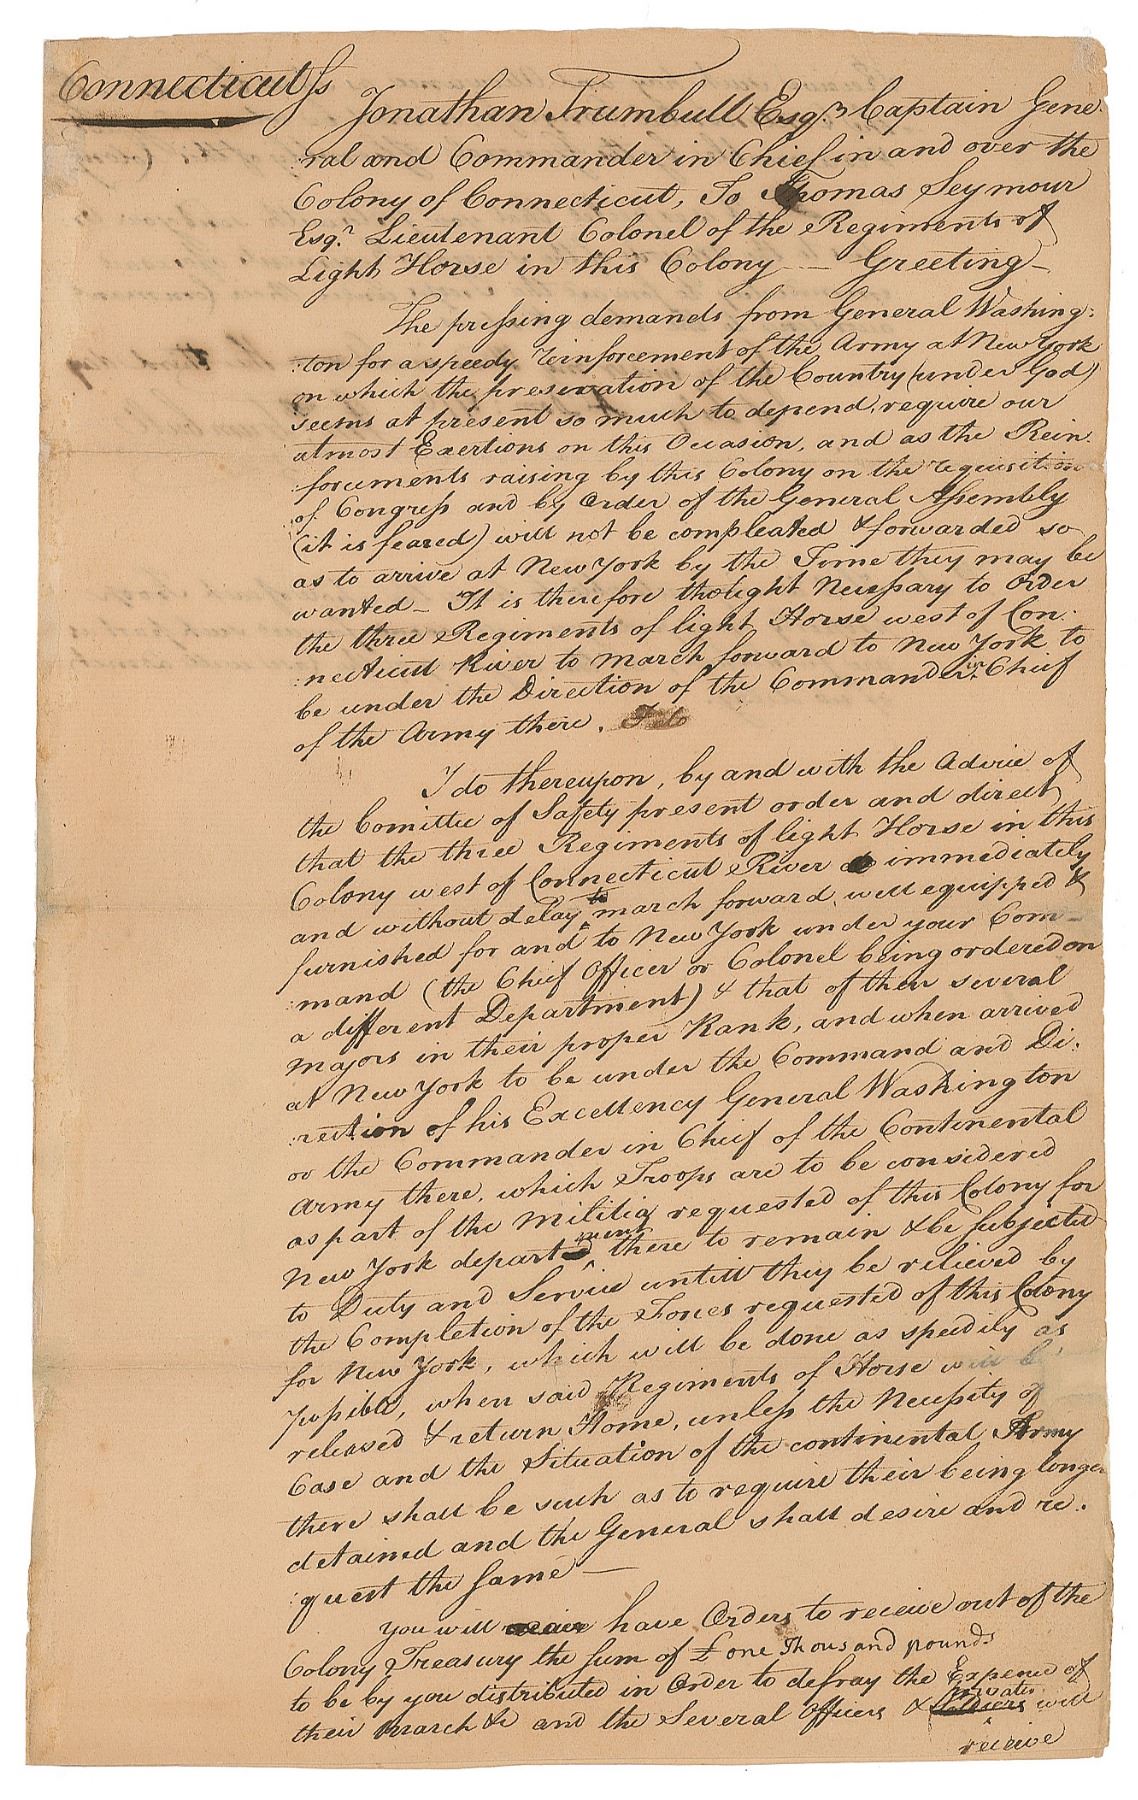 Connecticut ss
Jonathan Trumbull Esqr. Captain Gene-
ral and Commander in Chief in and over the
Colony of Connecticut, To Thomas Seymour
Esqr. Lieutenant Colonel of the Regiments of
Light Horse in this Colony — Greeting —
The pressing demands from General Washing:
:ton for a speedy reinforcement of the Army at New York
on which the preservation of the Country (under God)
seems at present so much to depend, require our
utmost Exertions on this Occasion, and as the Rein.
:forcements raising by this Colony on the requisition
of Congress and by Order of the General Assembly
(it is feared) will not be compleated & forwarded so
as to arrive at New York by the Time they may be
wanted — It is therefore tho't ught Necessary to Order
the three Regiments of light Horse west of Con:
:necticut River to march forward to New York, to
be under the Direction of the Commander in Chief
of the Army there.
I do thereupon, by and with the Advice of
the Comittee of Safety present order and direct
that the three Regiments of light Horse in this
Colony west of Connecticut River immediately
and without delay to march forward well equipped &
furnished for and to New York under your Com-
:mand (the Chief Officer or Colonel being ordered on
a different Department) & that of their several
Majors in their proper Rank, and when arrived
at New York to be under the Command and Di:
:rection of his Excellency General Washington
or the Commander in Chief of the Continental
Army there, which Troops are to be considered
as part of the Militia requested of this Colony for
New York department there to remain & be subjected
to Duty and Service untill they be relieved by
the Completion of the Forces requested of this Colony
for New York, which will be done as speedily as
possible, when said Regiments of Horse will be
released & return Home, unless the Necessity of
Case and the Situation of the continental Army
there shall be such as to require their being longer
detained and the General shall desire and re:
:quest the same —
You will have Orders to receive out of the
Colony Treasury the sum of £ one Thousand pounds
to be by you distributed in Order to defray the Expence of
their march &c and the Several Officers & privates will
receive